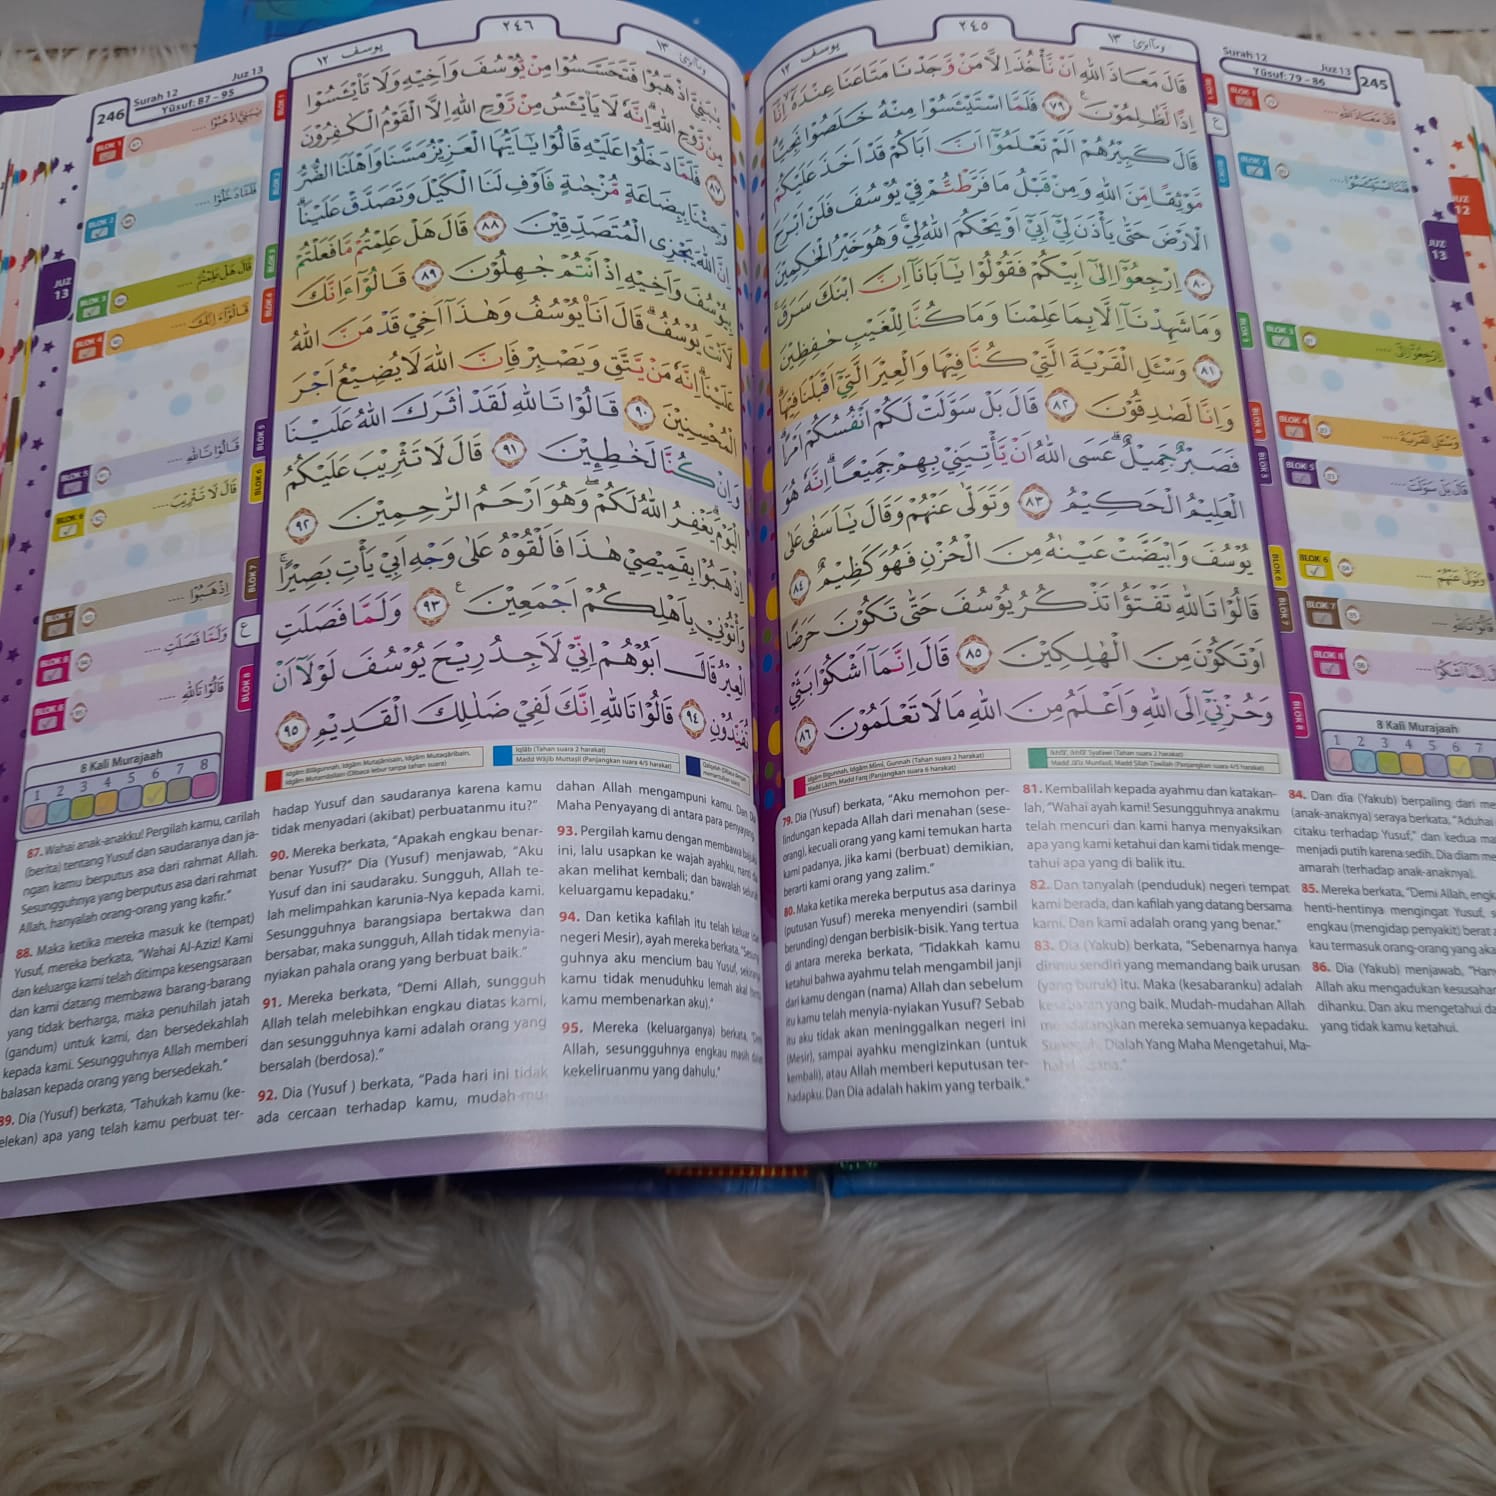 ٢٤٥
يوسف ١٢
Surah 12
Yūsuf: 79 - 86
Juz 13
245
قَالَ مَعَاذَ اللّٰهِ اَنْ نَّأْخُذَ اِلَّا مَنْ وَّجَدْنَا مَتَاعَنَا عِنْدَهٗٓ اِنَّآ
اِذًا لَّظٰلِمُوْنَ ࣖ ٧٩ فَلَمَّا اسْتَيْـَٔسُوْا مِنْهُ خَلَصُوْا نَجِيًّاۗ
قَالَ كَبِيْرُهُمْ اَلَمْ تَعْلَمُوْٓا اَنَّ اَبَاكُمْ قَدْ اَخَذَ عَلَيْكُمْ
مَّوْثِقًا مِّنَ اللّٰهِ وَمِنْ قَبْلُ مَا فَرَّطْتُّمْ فِيْ يُوْسُفَ فَلَنْ اَبْرَحَ
الْاَرْضَ حَتّٰى يَأْذَنَ لِيْٓ اَبِيْٓ اَوْ يَحْكُمَ اللّٰهُ لِيْۚ وَهُوَ خَيْرُ الْحٰكِمِيْنَ
٨٠ اِرْجِعُوْٓا اِلٰٓى اَبِيْكُمْ فَقُوْلُوْا يٰٓاَبَانَآ اِنَّ ابْنَكَ سَرَقَۚ
وَمَا شَهِدْنَآ اِلَّا بِمَا عَلِمْنَا وَمَا كُنَّا لِلْغَيْبِ حٰفِظِيْنَ
٨١ وَسْـَٔلِ الْقَرْيَةَ الَّتِيْ كُنَّا فِيْهَا وَالْعِيْرَ الَّتِيْٓ اَقْبَلْنَا فِيْهَاۗ
وَاِنَّا لَصٰدِقُوْنَ ٨٢ قَالَ بَلْ سَوَّلَتْ لَكُمْ اَنْفُسُكُمْ اَمْرًاۗ
فَصَبْرٌ جَمِيْلٌۗ عَسَى اللّٰهُ اَنْ يَّأْتِيَنِيْ بِهِمْ جَمِيْعًاۗ اِنَّهٗ هُوَ
الْعَلِيْمُ الْحَكِيْمُ ٨٣ وَتَوَلّٰى عَنْهُمْ وَقَالَ يٰٓاَسَفٰى عَلٰى
يُوْسُفَ وَابْيَضَّتْ عَيْنٰهُ مِنَ الْحُزْنِ فَهُوَ كَظِيْمٌ ٨٤
قَالُوْا تَاللّٰهِ تَفْتَؤُا تَذْكُرُ يُوْسُفَ حَتّٰى تَكُوْنَ حَرَضًا
اَوْ تَكُوْنَ مِنَ الْهٰلِكِيْنَ ٨٥ قَالَ اِنَّمَآ اَشْكُوْا بَثِّيْ
وَحُزْنِيْٓ اِلَى اللّٰهِ وَاَعْلَمُ مِنَ اللّٰهِ مَا لَا تَعْلَمُوْنَ ٨٦
BLOK 1
BLOK 2
BLOK 3
BLOK 4
BLOK 5
BLOK 6
BLOK 7
BLOK 8
8 Kali Murajaah
1 2 3 4 5 6 7
JUZ 12
JUZ 13
79. Dia (Yusuf) berkata, "Aku memohon per-
lindungan kepada Allah dari menahan (sese-
orang), kecuali orang yang kami temukan harta
kami padanya, jika kami (berbuat) demikian,
berarti kami orang yang zalim."
80. Maka ketika mereka berputus asa darinya
(putusan Yusuf) mereka menyendiri (sambil
berunding) dengan berbisik-bisik. Yang tertua
di antara mereka berkata, "Tidakkah kamu
ketahui bahwa ayahmu telah mengambil janji
dari kamu dengan (nama) Allah dan sebelum
itu kamu telah menyia-nyiakan Yusuf? Sebab
itu aku tidak akan meninggalkan negeri ini
(Mesir), sampai ayahku mengizinkan (untuk
kembali), atau Allah memberi keputusan ter-
hadapku. Dan Dia adalah hakim yang terbaik."
81. Kembalilah kepada ayahmu dan katakan-
lah, "Wahai ayah kami! Sesungguhnya anakmu
telah mencuri dan kami hanya menyaksikan
apa yang kami ketahui dan kami tidak menge-
tahui apa yang di balik itu.
82. Dan tanyalah (penduduk) negeri tempat
kami berada, dan kafilah yang datang bersama
kami. Dan kami adalah orang yang benar."
83. Dia (Yakub) berkata, "Sebenarnya hanya
dirimu sendiri yang memandang baik urusan
(yang buruk) itu. Maka (kesabaranku) adalah
kesabaran yang baik. Mudah-mudahan Allah
mendatangkan mereka semuanya kepadaku.
Sungguh, Dialah Yang Maha Mengetahui, Ma-
84. Dan dia (Yakub) berpaling dari me
(anak-anaknya) seraya berkata, "Aduhai
citaku terhadap Yusuf," dan kedua ma
menjadi putih karena sedih. Dia diam me
amarah (terhadap anak-anaknya).
85. Mereka berkata, "Demi Allah, engk
henti-hentinya mengingat Yusuf, s
engkau (mengidap penyakit) berat a
kau termasuk orang-orang yang aka
86. Dia (Yakub) menjawab, "Han
Allah aku mengadukan kesusahan
dihanku. Dan aku mengetahui da
yang tidak kamu ketahui.
٢٤٦
يوسف ١٢
Juz 13
Surah 12
Yūsuf: 87 - 95
246
يٰبَنِيَّ اذْهَبُوْا فَتَحَسَّسُوْا مِنْ يُّوْسُفَ وَاَخِيْهِ وَلَا تَا۟يْـَٔسُوْا
مِنْ رَّوْحِ اللّٰهِۗ اِنَّهٗ لَا يَا۟يْـَٔسُ مِنْ رَّوْحِ اللّٰهِ اِلَّا الْقَوْمُ الْكٰفِرُوْنَ
٨٧ فَلَمَّا دَخَلُوْا عَلَيْهِ قَالُوْا يٰٓاَيُّهَا الْعَزِيْزُ مَسَّنَا وَاَهْلَنَا الضُّرُّ
وَجِئْنَا بِبِضَاعَةٍ مُّزْجٰىةٍ فَاَوْفِ لَنَا الْكَيْلَ وَتَصَدَّقْ عَلَيْنَاۗ
اِنَّ اللّٰهَ يَجْزِى الْمُتَصَدِّقِيْنَ ٨٨ قَالَ هَلْ عَلِمْتُمْ مَّا فَعَلْتُمْ
بِيُوْسُفَ وَاَخِيْهِ اِذْ اَنْتُمْ جٰهِلُوْنَ ٨٩ قَالُوْٓا ءَاِنَّكَ
لَاَنْتَ يُوْسُفُۗ قَالَ اَنَا۠ يُوْسُفُ وَهٰذَآ اَخِيْ قَدْ مَنَّ اللّٰهُ
عَلَيْنَاۗ اِنَّهٗ مَنْ يَّتَّقِ وَيَصْبِرْ فَاِنَّ اللّٰهَ لَا يُضِيْعُ اَجْرَ
الْمُحْسِنِيْنَ ٩٠ قَالُوْا تَاللّٰهِ لَقَدْ اٰثَرَكَ اللّٰهُ عَلَيْنَا
وَاِنْ كُنَّا لَخٰطِـِٕيْنَ ٩١ قَالَ لَا تَثْرِيْبَ عَلَيْكُمُ
الْيَوْمَۗ يَغْفِرُ اللّٰهُ لَكُمْۖ وَهُوَ اَرْحَمُ الرّٰحِمِيْنَ ٩٢
اِذْهَبُوْا بِقَمِيْصِيْ هٰذَا فَاَلْقُوْهُ عَلٰى وَجْهِ اَبِيْ يَأْتِ بَصِيْرًاۚ
وَأْتُوْنِيْ بِاَهْلِكُمْ اَجْمَعِيْنَ ࣖ ٩٣ وَلَمَّا فَصَلَتِ
الْعِيْرُ قَالَ اَبُوْهُمْ اِنِّيْ لَاَجِدُ رِيْحَ يُوْسُفَ لَوْلَآ اَنْ
تُفَنِّدُوْنِ ٩٤ قَالُوْا تَاللّٰهِ اِنَّكَ لَفِيْ ضَلٰلِكَ الْقَدِيْمِ ٩٥
BLOK 1
BLOK 2
BLOK 3
BLOK 4
BLOK 5
BLOK 6
BLOK 7
BLOK 8
BLOK 8
JUZ 13
8 Kali Murajaah
1 2 3 4 5 6 7 8
87. Wahai anak-anakku! Pergilah kamu, carilah
(berita) tentang Yusuf dan saudaranya dan ja-
ngan kamu berputus asa dari rahmat Allah.
Sesungguhnya yang berputus asa dari rahmat
Allah, hanyalah orang-orang yang kafir."
88. Maka ketika mereka masuk ke (tempat)
Yusuf, mereka berkata, "Wahai Al-Aziz! Kami
dan keluarga kami telah ditimpa kesengsaraan
dan kami datang membawa barang-barang
yang tidak berharga, maka penuhilah jatah
(gandum) untuk kami, dan bersedekahlah
kepada kami. Sesungguhnya Allah memberi
balasan kepada orang yang bersedekah."
89. Dia (Yusuf) berkata, "Tahukah kamu (ke-
elekan) apa yang telah kamu perbuat ter-
hadap Yusuf dan saudaranya karena kamu
tidak menyadari (akibat) perbuatanmu itu?"
90. Mereka berkata, "Apakah engkau benar-
benar Yusuf?" Dia (Yusuf) menjawab, "Aku
Yusuf dan ini saudaraku. Sungguh, Allah te-
lah melimpahkan karunia-Nya kepada kami.
Sesungguhnya barangsiapa bertakwa dan
bersabar, maka sungguh, Allah tidak menyia-
nyiakan pahala orang yang berbuat baik."
91. Mereka berkata, "Demi Allah, sungguh
Allah telah melebihkan engkau diatas kami,
dan sesungguhnya kami adalah orang yang
bersalah (berdosa)."
92. Dia (Yusuf ) berkata, "Pada hari ini tidak
ada cercaan terhadap kamu, mudah-mu-
dahan Allah mengampuni kamu. Dan Dia
Maha Penyayang di antara para penyayang.
93. Pergilah kamu dengan membawa bajuku
ini, lalu usapkan ke wajah ayahku, nanti dia
akan melihat kembali; dan bawalah seluruh
keluargamu kepadaku."
94. Dan ketika kafilah itu telah keluar (dari
negeri Mesir), ayah mereka berkata, "Sesung
guhnya aku mencium bau Yusuf, sekiranya
kamu tidak menuduhku lemah akal (tentu
kamu membenarkan aku)."
95. Mereka (keluarganya) berkata, "Demi
Allah, sesungguhnya engkau masih dalam
kekeliruanmu yang dahulu."